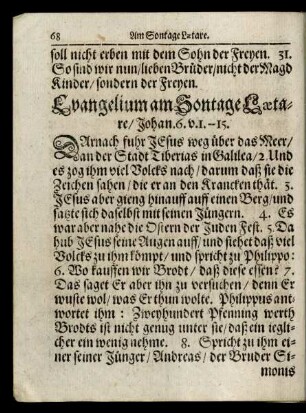 68 Am Sontage Lætare.
soll nicht erben mit dem Sohn der Freyen. 31.
So sind wir nun/lieben Brüder/nicht der Magd
Kinder/sondern der Freyen.
Evangelium am Sontage Læta-
re/Johan.6.v.1.–15.
DArnach fuhr JEsus weg über das Meer/
an der Stadt Tiberias in Galilea/2.Und
es zog ihm viel Volcks nach/darum daß sie die
Zeichen sahen/die er an den Krancken thät. 3.
JEsus aber gieng hinauff auff einen Berg/und
satzte sich daselbst mit seinen Jüngern. 4. Es
war aber nahe die Ostern der Juden Fest. 5.Da
hub JEsus seine Augen auff/und siehet daß viel
Volcks zu ihm kömpt/und spricht zu Philippo:
6. Wo kauffen wir Brodt/daß diese essen? 7.
Das saget Er aber ihn zu versuchen/denn Er
wuste wol/was Er thun wolte. Philippus ant-
wortet ihm: Zweyhundert Pfenning werth
Brodts ist nicht genug unter sie/daß ein ieglic-
her ein wenig nehme. 8. Spricht zu ihm ei-
ner seiner Jünger/Andreas/der Bruder Si-
monis